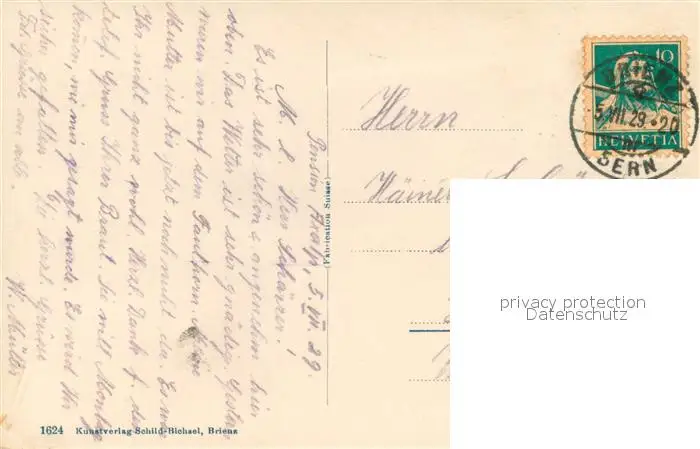 Pension Axalp, 5. VII. 29.
M. l. Herr Schärer!
Es ist sehr schön & angenehm hier
oben. Das Wetter ist sehr gnädig. Gestern
waren wir auf dem Faulhorn. Meine
Mutter ist bis jetzt noch nicht da. Es war
Ihr nicht ganz wohl. Herzl. Dank f. das
Telef. Gruss Ihrer Braut. Sie will Montag
kommen, wie mir gesagt wurde. Es wird Ihr
sicher gefallen.
Herzl. Grüsse
W. Müller
Frl. Grüsse an alle.
(Fabrication Suisse)
1624 Kunstverlag Schild-Bichsel, Brienz
Herrn
10
HELVETIA
BRIENZ
5. VII. 29
BERN
privacy protection
Datenschutz